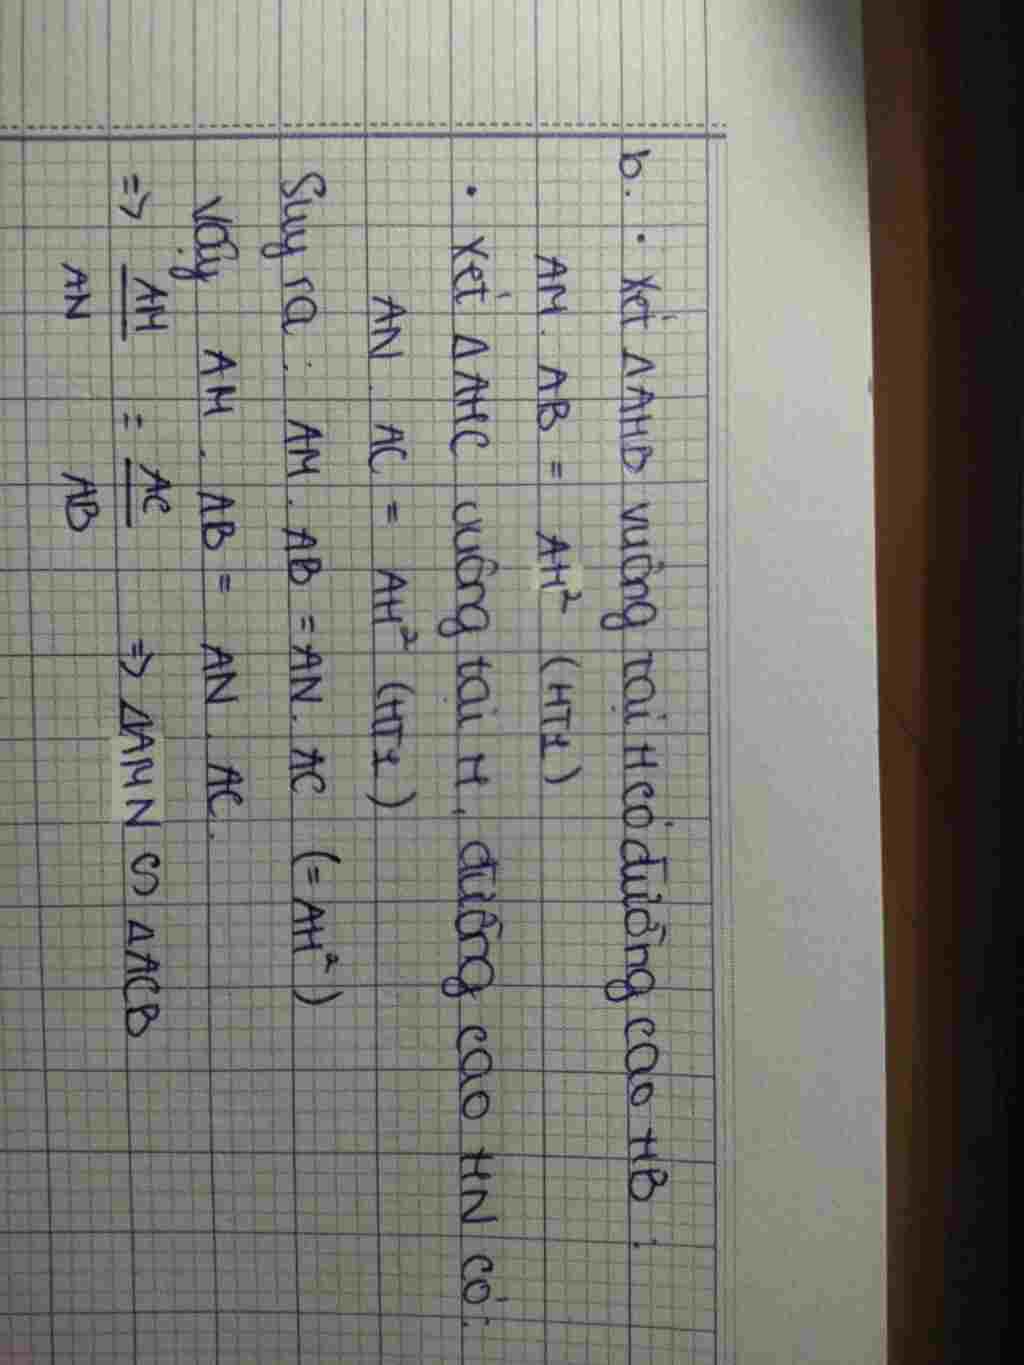 b. • Xét ΔAHB vuông tại H có đường cao HB :
AM. AB = AH² (HT1)
• Xét ΔAHC vuông tại H, đường cao HN có:
AN. AC = AH² (HT1)
Suy ra: AM. AB = AN. AC (= AH²)
Vậy AM. AB = AN. AC.
=> AM/AN = AC/AB => ΔAMN ∽ ΔACB